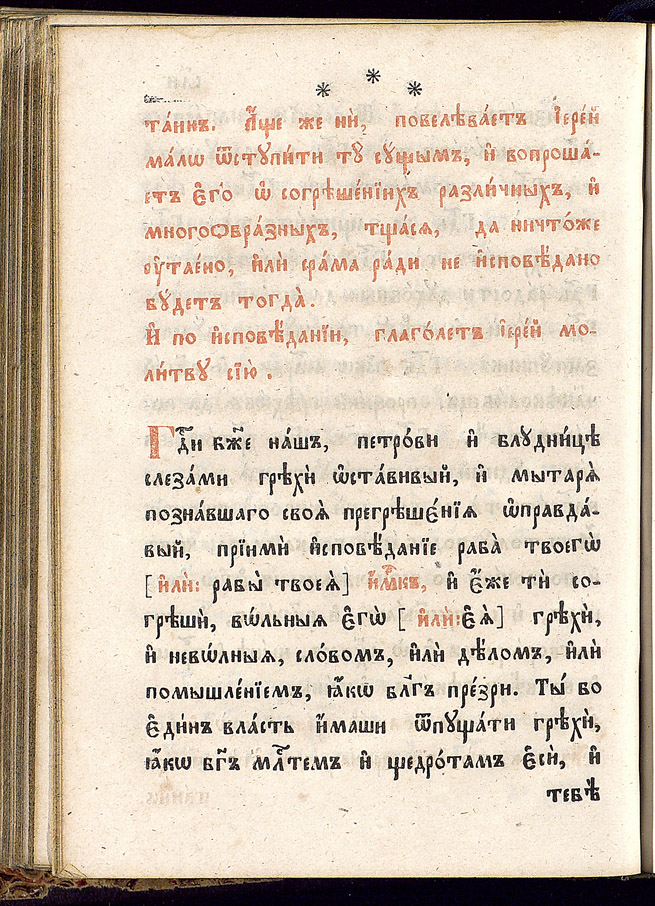 * * *
та́инъ. А҆́ще же ни, повелѣва́етъ І҆ере́й
ма́лѡ ѿступи́ти тꙋ̀ сꙋ́щымъ, и҆ вопроша́-
етъ є҆го̀ ѡ҆ согрѣше́нїихъ разли́чныхъ, и҆
многоѻбра́зныхъ, тща́сѧ, да ничто́же
ᲂу҆тае́но, и҆лѝ сра́ма ра́ди не и҆сповѣ́дано
бꙋ́детъ тогда̀.
И҆ по и҆сповѣ́данїи, глаго́летъ і҆ере́й мо-
ли́твꙋ сїю̀.
Гдⷭ҇и бж҃е на́шъ, петро́ви и҆ блꙋдни́цѣ
слеза́ми грѣхѝ ѡ҆ста́вивый, и҆ мытарѧ̀
позна́вшаго своѧ̀ прегрѣшє́нїѧ ѡ҆правда́-
вый, прїимѝ и҆сповѣ́данїе раба̀ твоегѡ̀
[и҆лѝ: рабы̀ твоеѧ̀] и҆́м҃къ, и҆ є҆́же тѝ со-
грѣшѝ, вѡ́льныѧ є҆гѡ̀ [и҆лѝ: є҆ѧ̀] грѣхѝ,
и҆ невѡ́лныѧ, сло́вомъ, и҆лѝ дѣ́ломъ, и҆лѝ
помышле́нїемъ, ꙗ҆́кѡ бл҃гъ пре́зри. Ты́ бо
є҆ди́нъ вла́сть и҆́маши ѿпꙋща́ти грѣхѝ,
ꙗ҆́кѡ бг҃ъ млⷭ҇темъ и҆ щедро́тамъ є҆сѝ, и҆
тебѣ̀